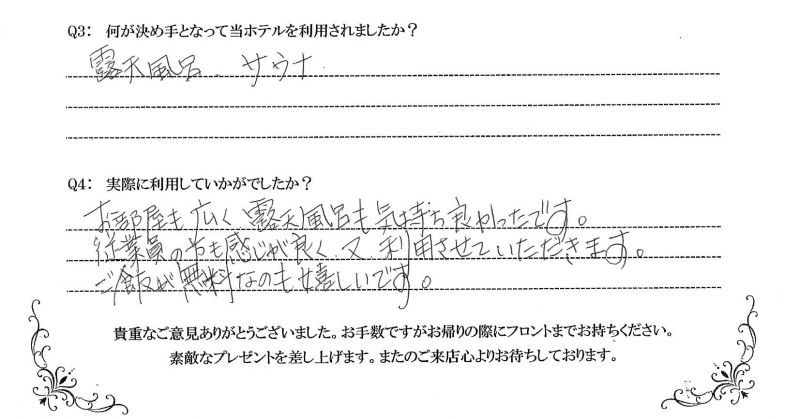 Q3: 何が決め手となって当ホテルを利用されましたか?
露天風呂、サウナ
Q4: 実際に利用していかがでしたか?
お部屋も広く露天風呂も気持ち良かったです。
従業員の方も感じが良く、又、利用させていただきます。
ご飯が無料なのも嬉しいです。
貴重なご意見ありがとうございました。お手数ですがお帰りの際にフロントまでお持ちください。
素敵なプレゼントを差し上げます。またのご来店心よりお待ちしております。